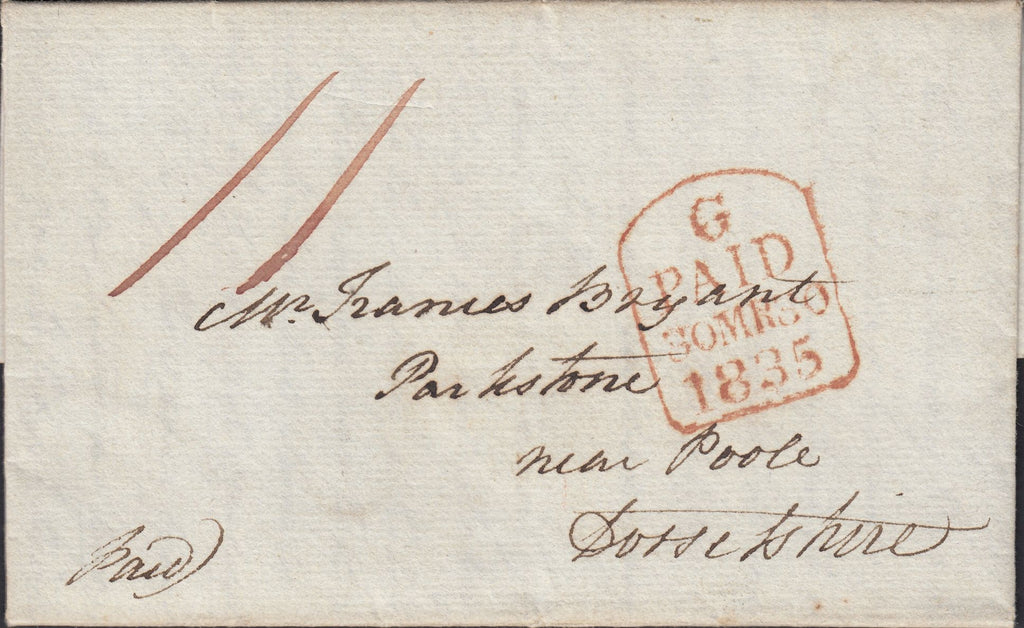 11
G
PAID
30MR30
1835
Mr. Frances Bryant
Parkstone
near Poole
Dorsetshire
Paid